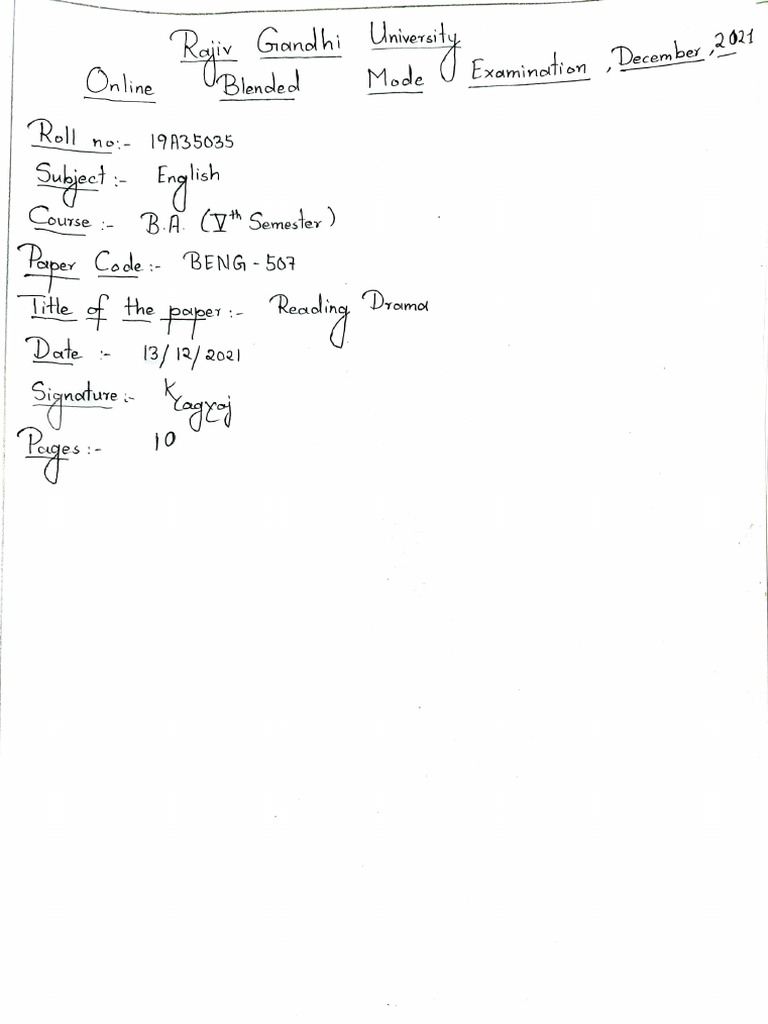 Rajiv Gandhi University
Online Blended Mode Examination, December, 2021
Roll no:- 19A35035
Subject:- English
Course:- B.A. (Vth Semester)
Paper Code:- BENG-507
Title of the paper:- Reading Drama
Date:- 13/12/2021
Signature:-
Pages:- 10